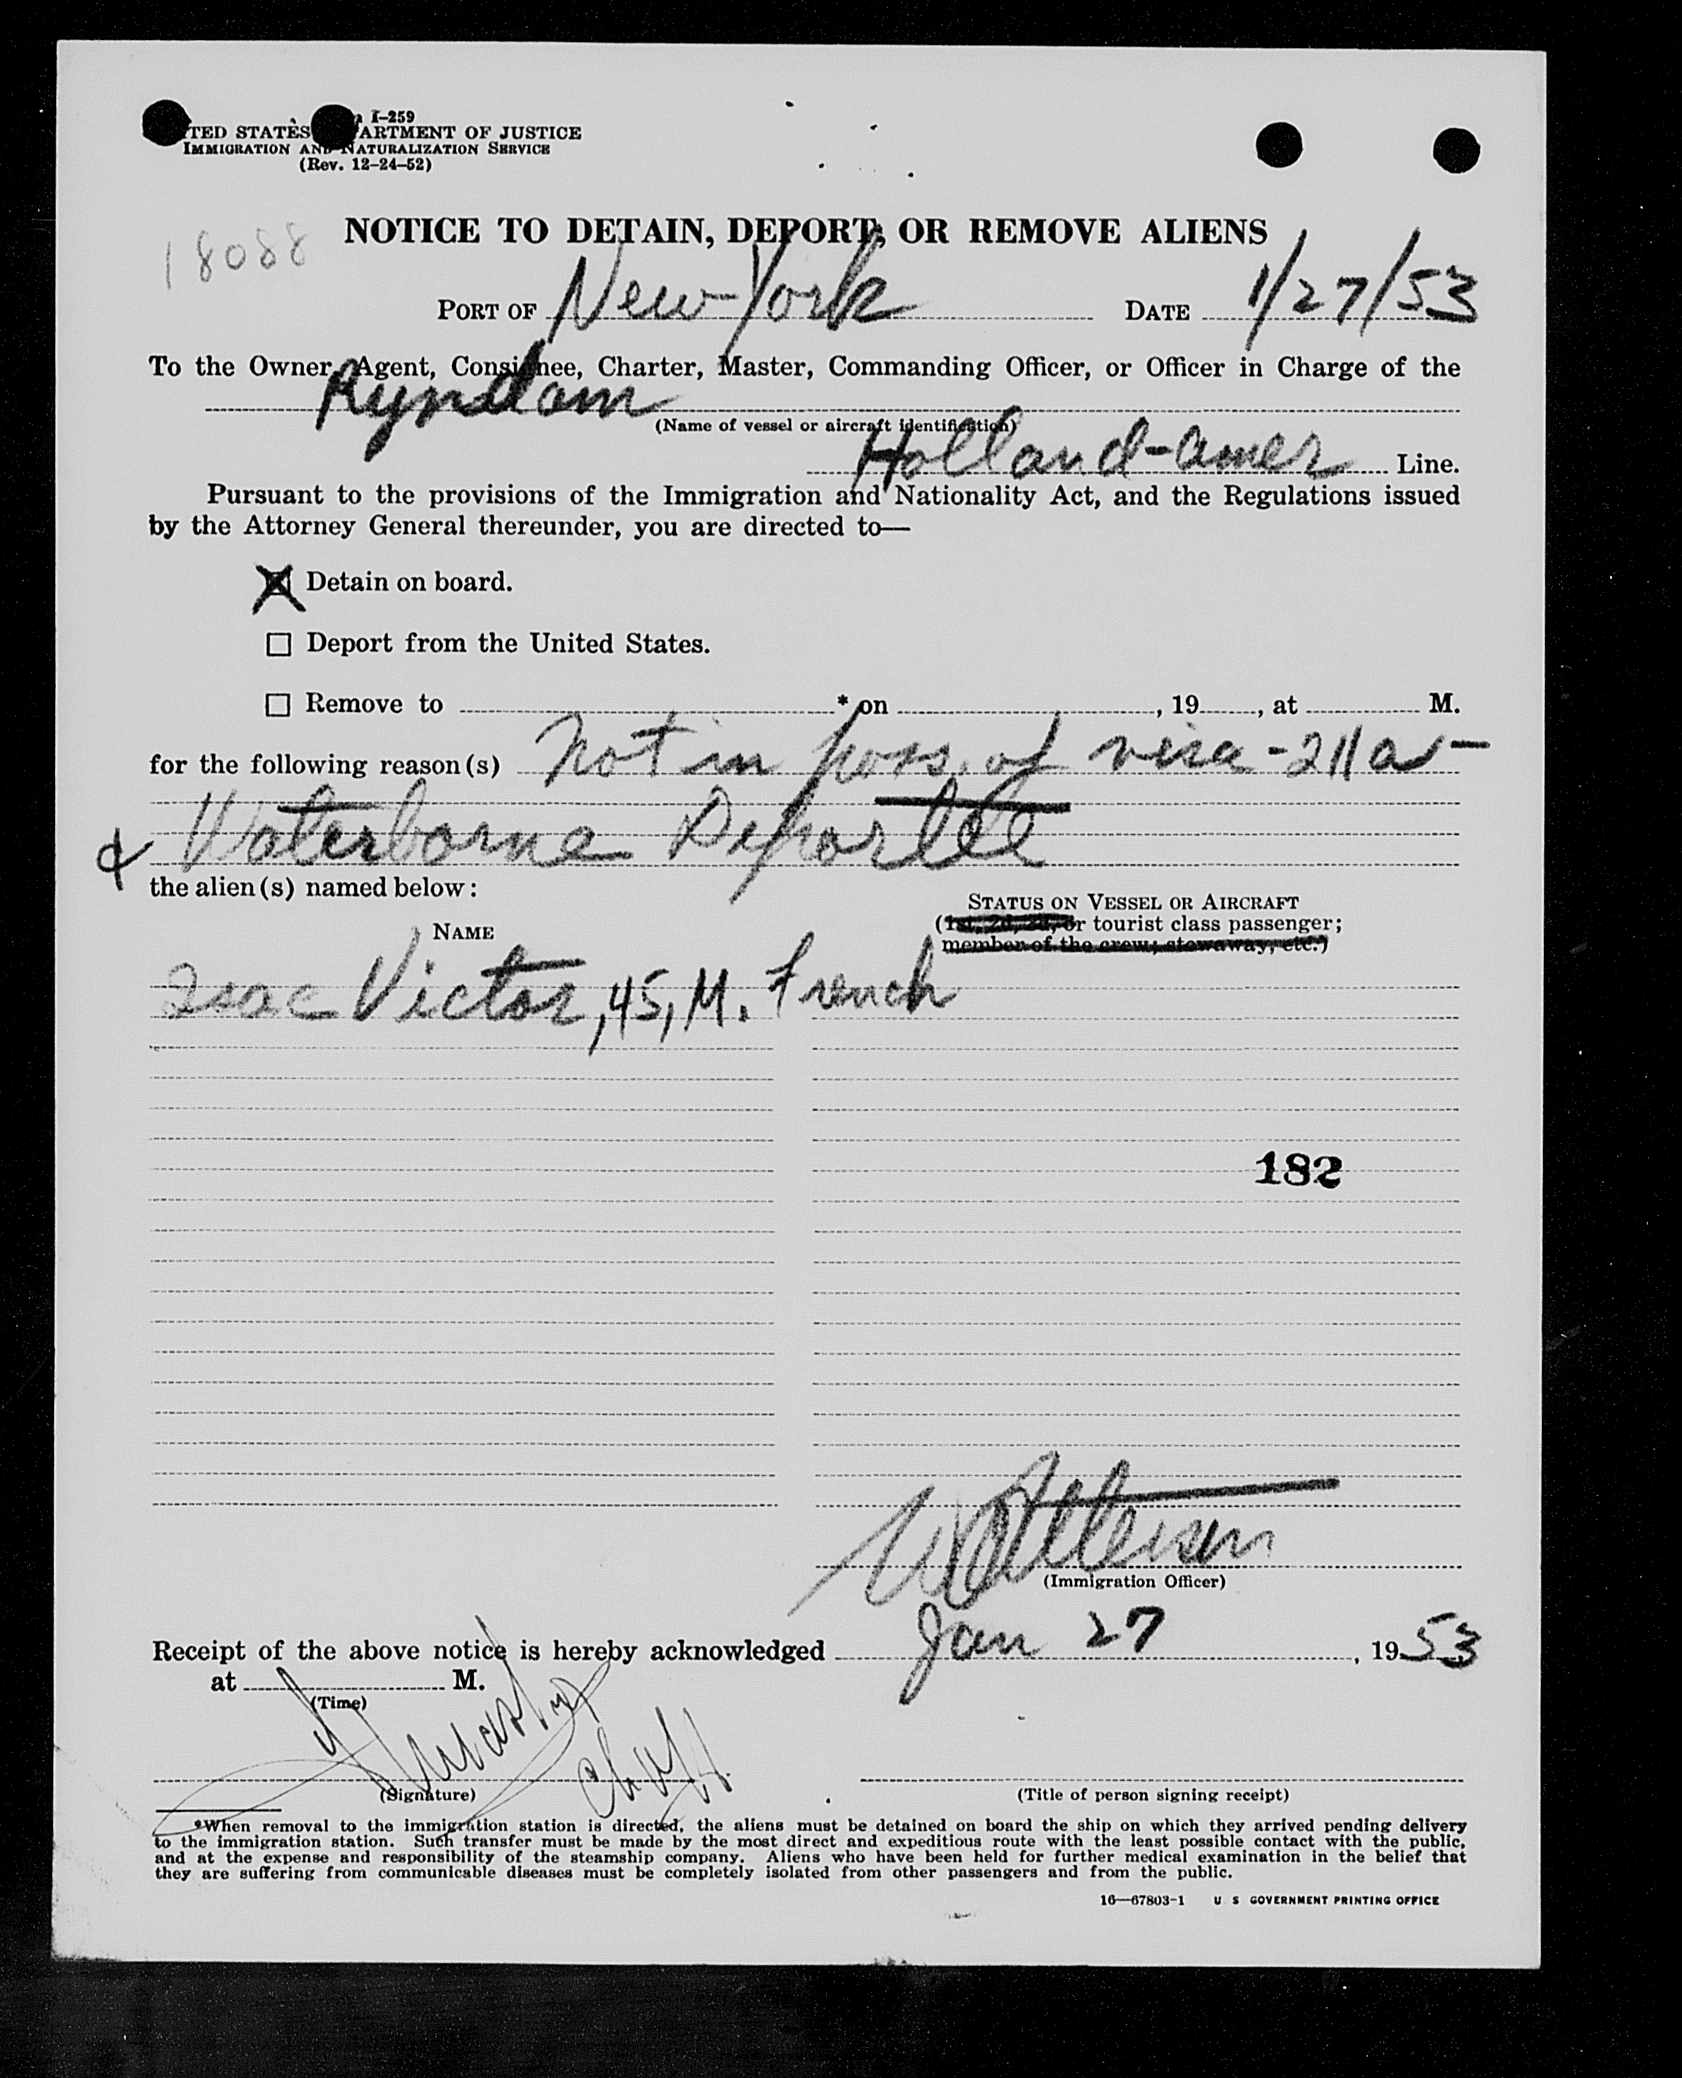 I-259
TED STATES ARTMENT OF JUSTICE
IMMIGRATION AND NATURALIZATION SERVICE
(Rev. 12-24-52)
18088
NOTICE TO DETAIN, DEPORT, OR REMOVE ALIENS
PORT OF New York DATE 1/27/53
To the Owner, Agent, Consignee, Charter, Master, Commanding Officer, or Officer in Charge of the
Ryndam
(Name of vessel or aircraft identification)
Holland-Amer Line.
Pursuant to the provisions of the Immigration and Nationality Act, and the Regulations issued
by the Attorney General thereunder, you are directed to—
X Detain on board.
☐ Deport from the United States.
☐ Remove to * on , 19 , at M.
for the following reason(s) Not in poss. of visa - 211a -
& Waterborne Deportee
the alien(s) named below:
STATUS ON VESSEL OR AIRCRAFT
(1st, 2d, 3d, or tourist class passenger;
member of the crew; stowaway, etc.)
NAME
Isac Victor, 45, M. French
182
(Immigration Officer)
Receipt of the above notice is hereby acknowledged Jan 27, 1953
at M.
(Time)
(Signature)
(Title of person signing receipt)
*When removal to the immigration station is directed, the aliens must be detained on board the ship on which they arrived pending delivery
to the immigration station. Such transfer must be made by the most direct and expeditious route with the least possible contact with the public,
and at the expense and responsibility of the steamship company. Aliens who have been held for further medical examination in the belief that
they are suffering from communicable diseases must be completely isolated from other passengers and from the public.
16—67803-1 U S GOVERNMENT PRINTING OFFICE